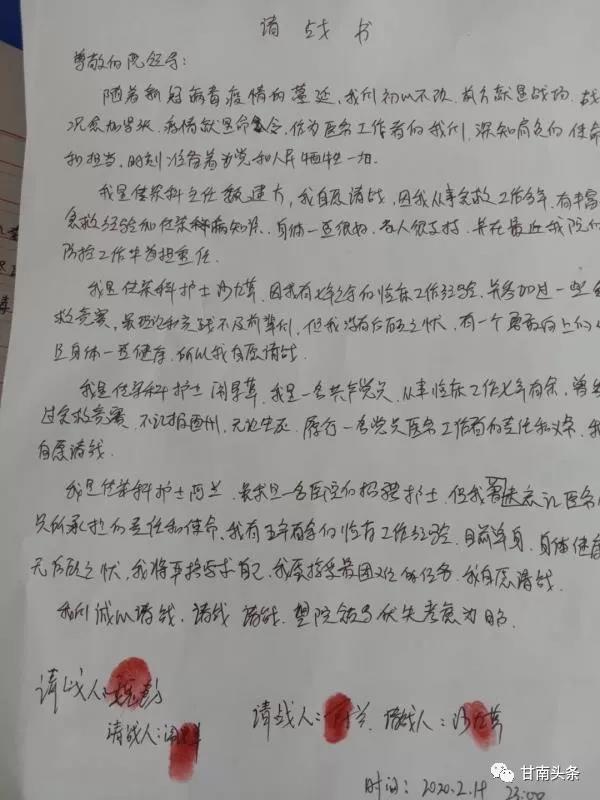 请战书
尊敬的院领导：
随着新冠病毒疫情的蔓延，我们初心不改，前方就是战场，战
况愈加紧张，疫情就是命令，作为医务工作者的我们，深知肩负的使命
和担当，时刻准备着为党和人民牺牲一切。
我是传染科主任魏建方，我自愿请战，因我从事急救工作多年，有丰富
急救经验和传染科病知识，身体一直很好，家人很支持，并在最近我院的
防控工作中为担重任．
我是传染科护士，因我有七年多的临床工作经验，并参加过一些急
救竞赛，虽理论和实践不及前辈们，但我没有后顾之忧，有一个勇敢向上的心
且身体一直健康，所以我自愿请战．
我是传染科护士闹果草，我是一名共产党员，从事临床工作七年有余，曾参
过急救竞赛，不计报酬，无论生死，履行一名党员医务工作者的责任和义务，我
自愿请战．
我是传染科护士阿兰，虽我是一名医院的招聘护士，但我没忘记医务
员所承担的责任和使命，我有五年有余的临床工作经验，目前单身，身体健康
无后顾之忧，我将严格要求自己，我愿接受最困难的任务，我自愿请战．
我们诚心请战，请战 请战．望院领导优先考虑为盼．
请战人：
请战人：
请战人： 请战人：
时间：2020.2.14
23:00
甘南头条